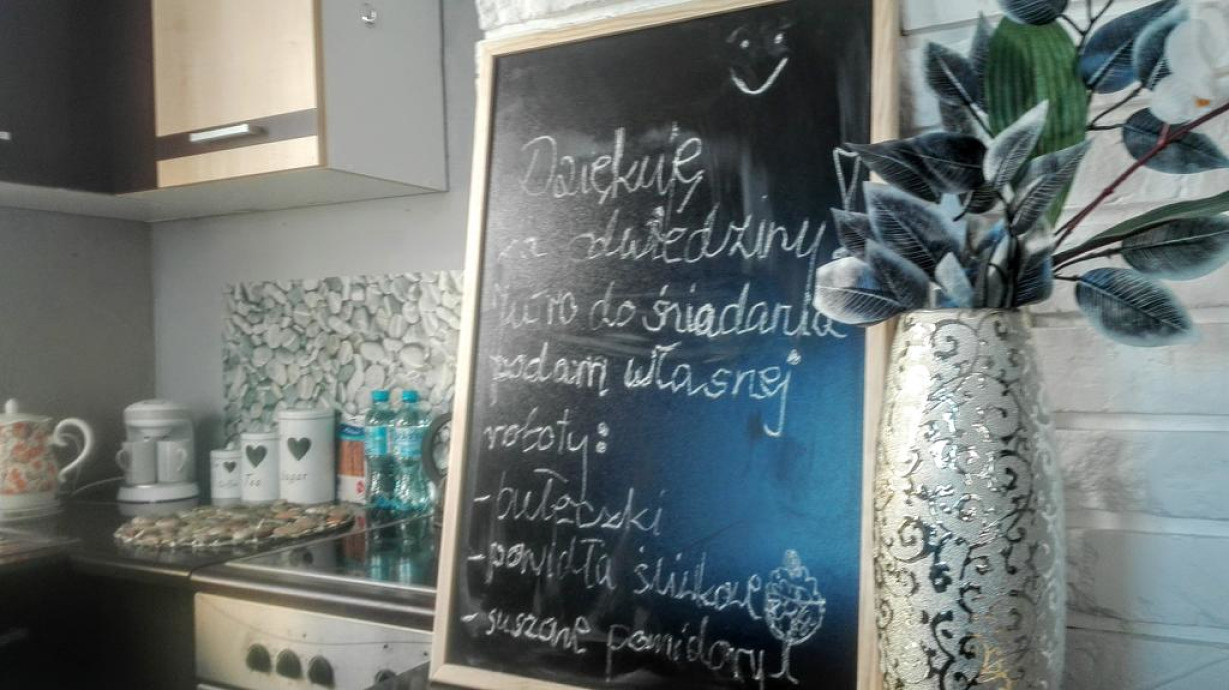 Dziękuję
za odwiedziny!
Jutro do śniadania
podam własnej
roboty:
- bułeczki
- powidła śliwkowe
- suszone pomidory!
Coffee
Tea
Sugar